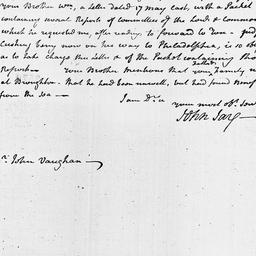 your Brother Wm, a Letter dated 17 May last, with a Packet
containing several Reports of Committees of the Lords & Commons
which he requested me, after reading, to forward to you –
Cushing being now on his way to Philadelphia, is so
as to take charge this Letter & of the Packet containing
Reports – your Brother Mentions that your family
at Broughton – that he had been unwell, but had found
from the Sea –
I am Dr Sir
your most Ob. Ser
John Jay
John Vaughan